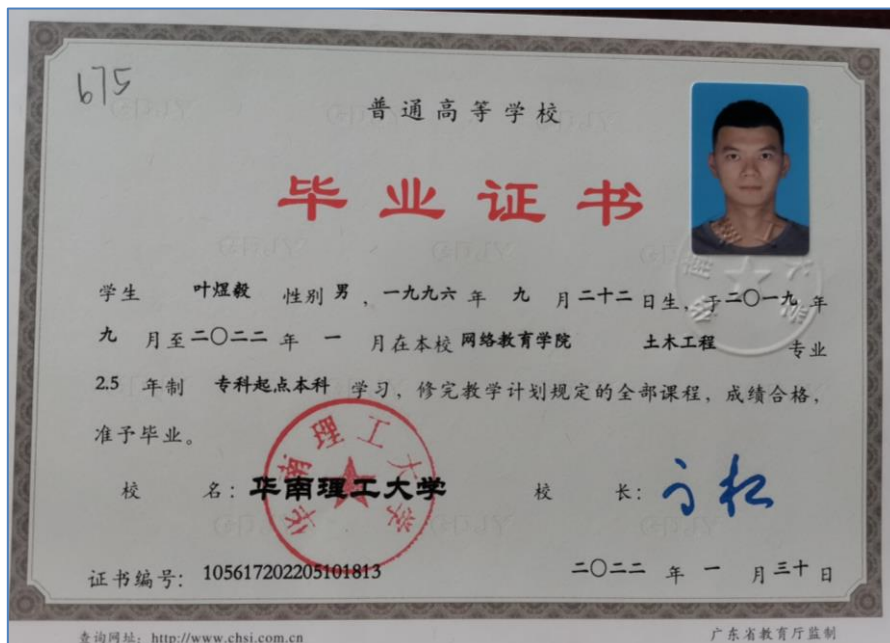 675
普通高等学校
毕业证书
学生 叶煜毅 性别 男，一九九六 年 九 月 二十二 日生，于 二〇一九 年
九 月至 二〇二二 年 一 月在本校 网络教育学院 土木工程 专业
2.5 年制 专科起点本科 学习，修完教学计划规定的全部课程，成绩合格，
准予毕业。
校 名：华南理工大学 校 长：
华南理工大学
证书编号：105617202205101813 二〇二二 年 一 月 三十 日
查询网址：http://www.chsi.com.cn 广东省教育厅监制